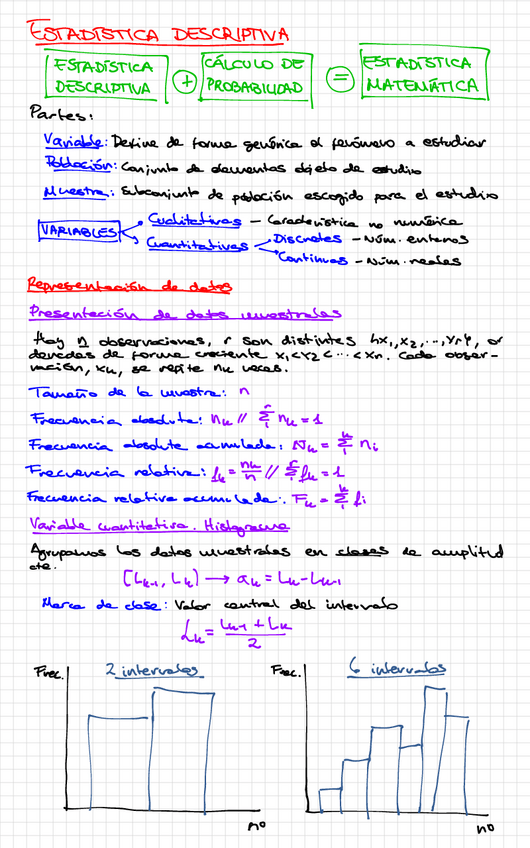 ESTADÍSTICA DESCRIPTIVA
ESTADÍSTICA DESCRIPTIVA + CÁLCULO DE PROBABILIDAD = ESTADÍSTICA MATEMÁTICA
Partes:
Variable: Define de forma genérica el fenómeno a estudiar
Población: Conjunto de elementos objeto de estudio
Muestra: Subconjunto de población escogido para el estudio
VARIABLES
Cualitativas – Característica no numérica
Cuantitativas
Discretas – Núm. enteros
Continuas – Núm. reales
Representación de datos
Presentación de datos muestrales
Hay n observaciones, r son distintas {x₁, x₂, ..., xr}, or
denadas de forma creciente x₁<x₂< ... <xn. Cada obser-
vación, xk, se repite nk veces.
Tamaño de la muestra: n
Frecuencia absoluta: nk // Σ₁ʳ nk = 1
Frecuencia absoluta acumulada: Nk = Σ₁ᵏ ni
Frecuencia relativa: fk = nk/n // Σ₁ʳ fk = 1
Frecuencia relativa acumulada: Fk = Σ₁ᵏ fi
Variable cuantitativa. Histograma
Agrupamos los datos muestrales en clases de amplitud
cte.
[Lk-1, Lk) → ak = Lk - Lk-1
Marca de clase: Valor central del intervalo
Lk = (Lk-1 + Lk)/2
Frec. 2 intervalos
Frec. 6 intervalos
nº
nº